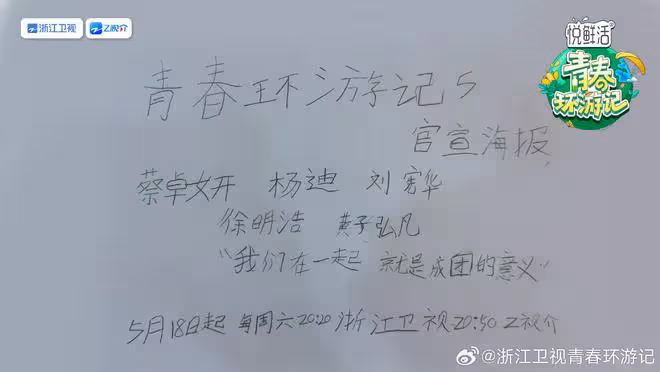 浙江卫视 Z视介
悦鲜活
青春
环游记
青春环游记5
官宣海报
蔡卓妍 杨迪 刘宪华
徐明浩 黄子弘凡
"我们在一起 就是成团的意义"
5月18日起 每周六20:20 浙江卫视 20:50 Z视介
@浙江卫视青春环游记